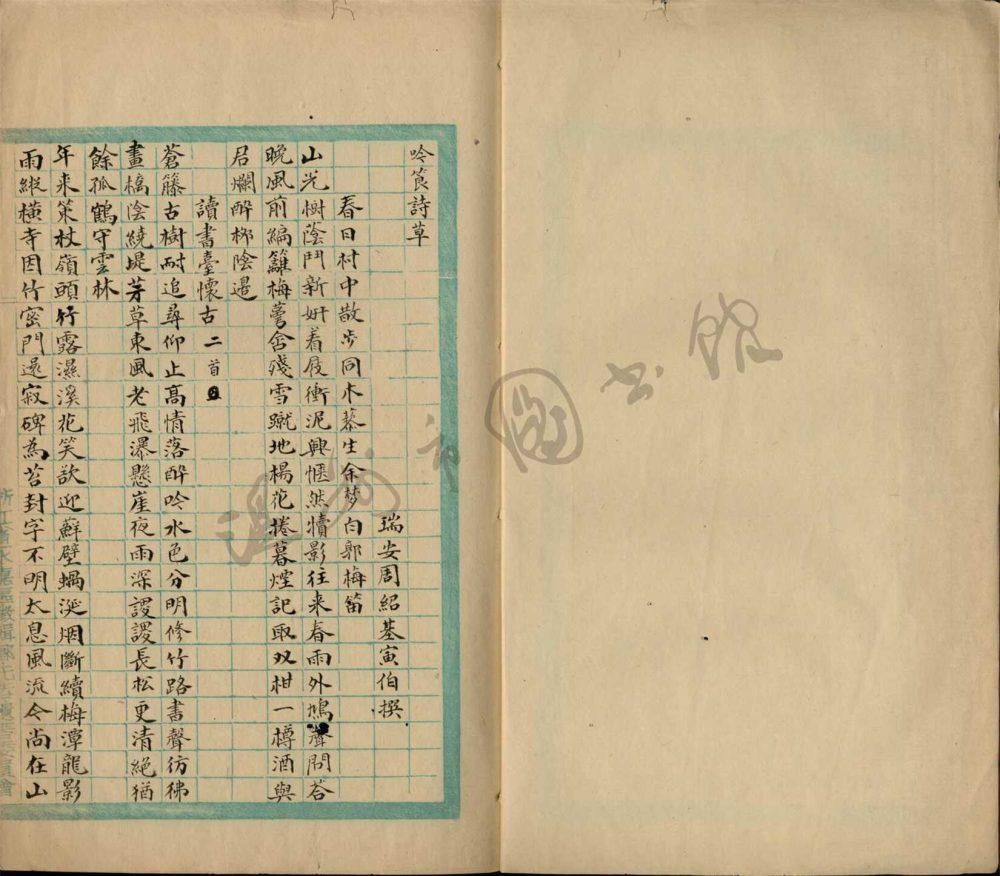 吟筤詩草
瑞安周紹基寅伯撰
春日村中散步同木慕生余夢白郭梅笛
山光樹蔭鬥新妍着屐衝泥興愜然犢影往来春雨外鳩聲問荅
晚風前編籬梅萼含殘雪蹴地楊花捲暮煙記取双柑一樽酒與
君爛醉栁陰邊
讀書臺懷古二首
蒼籐古樹耐追尋仰止髙情落酔吟水色分明修竹路書聲彷彿
畫橋陰繞堤芳草東風老飛瀑懸崖夜雨深謖謖長松更清絶猶
餘孤鶴守雲林
年来策杖嶺頭行竹露濕溪花笑欲迎蘇壁蝸涎烟斷續梅潭龍影
雨縱橫寺因竹密門遥寂碑為苔封字不明太息風流今尚在山
圖书館